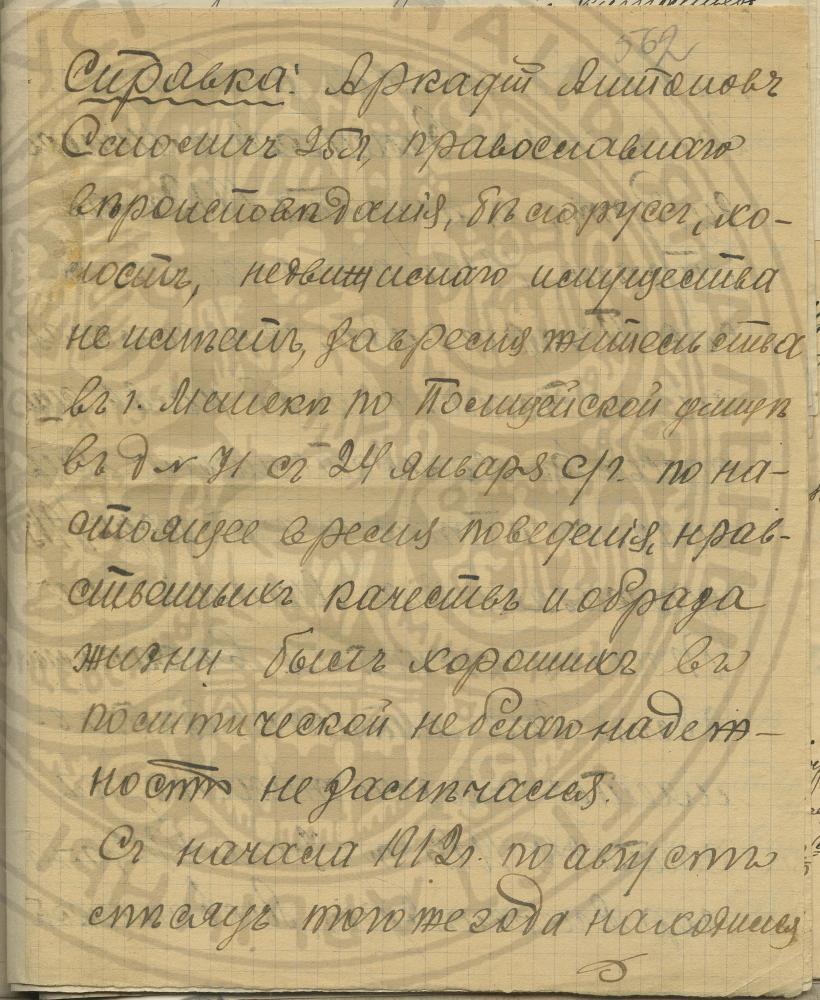 562
Справка: Аркадій Антоновъ
Смоличъ 25 л, православнаго
вѣроисповѣданія, бѣлоруссъ, хо-
лостъ, недвижимаго имущества
не имѣетъ, за время жительства
въ г. Минскѣ по Полицейской улицѣ
въ д № 71 съ 24 января с/г. по на-
стоящее время поведенія, нрав-
ственныхъ качествъ и образа
жизни былъ хорошихъ въ
политической неблагонадеж-
ность не замѣчался.
Съ начала 1912 г. по августъ
мѣсяцъ того же года находился